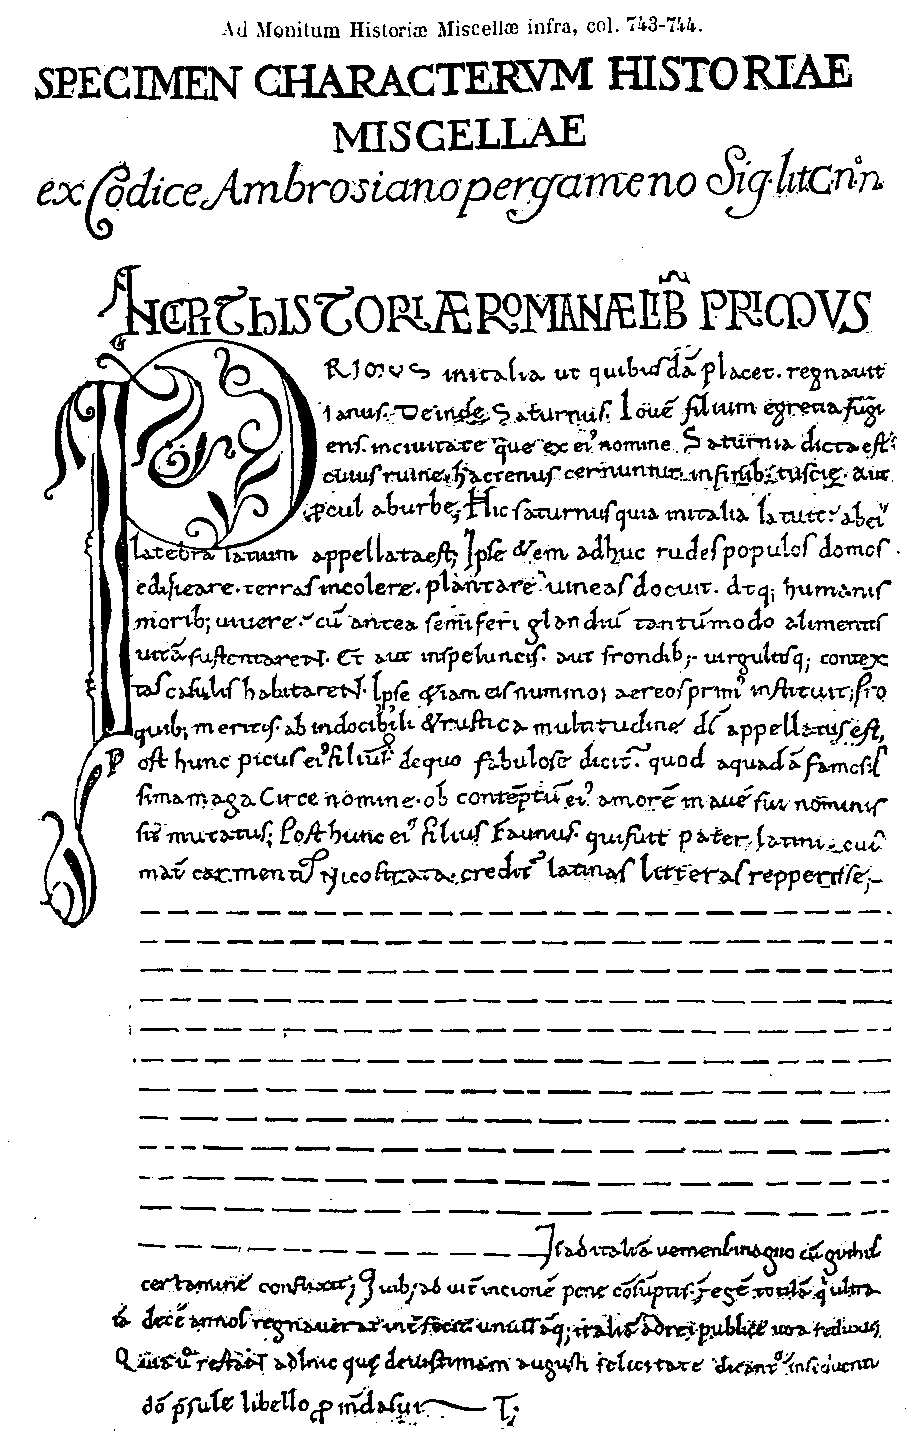 Ad Monitum Historiæ Miscellæ infra, col. 743-744.
SPECIMEN CHARACTERVM HISTORIAE
MISCELLAE
ex Codice Ambrosiano pergameno Sig. lit C. n.
HISTORIÆ ROMANÆ LIB PRIMVS
PRIMUS initalia ut quibusdā placet. regnauit
ianus. Deinde Saturnus. Iouē filium egrecia fugi
ens. inciuitate que ex ei' nomine Saturnia dicta est.
cuius ruine hactenus cernuntur infinib; tuscie. aut
pcul aburbe; Hic saturnus quia initalia latuit abei'
latebra latium appellataest; Ipse &em adhuc rudespopulos domos
edificare. terras incolere. plantare uineas docuit. atq; humanis
morib; uiuere. cū antea semiferi glandiū tantūmodo alimentis
uitā sustentareNt. Et aut inspeluncis. aut frondib; uirgultisq; contex
tas casulis habitareNt. Ipse &iam eis nummos aereos primū instituit; Pro
quib; meritis. ab indocibili &rustica multitudine ds appellatus est,
Post hunc picus ei' filius dequo fabulose dicit. quod aquadā famosis
sima maga Circe nomine. ob contēptū ei' amorē in auē sui nominis
sit mutatus; Post hunc ei' filius Faunus. quifuit pater latini. cui'
mat carmentis Nicostrata creditur latinas litteras repperisse;
Is ad italiā ueniens. magno cū guthis
certamine conflixit; Quib; ad īncionē pene cōsūptis; regē totilā qui ultra
decē annos regnauerat unīusāq; italiā adrei publice iura reduxit.
Quia uero restant adhuc que deiustiniani augusti felicitate dicantur insequenti
dō psule libello pmdasur T;